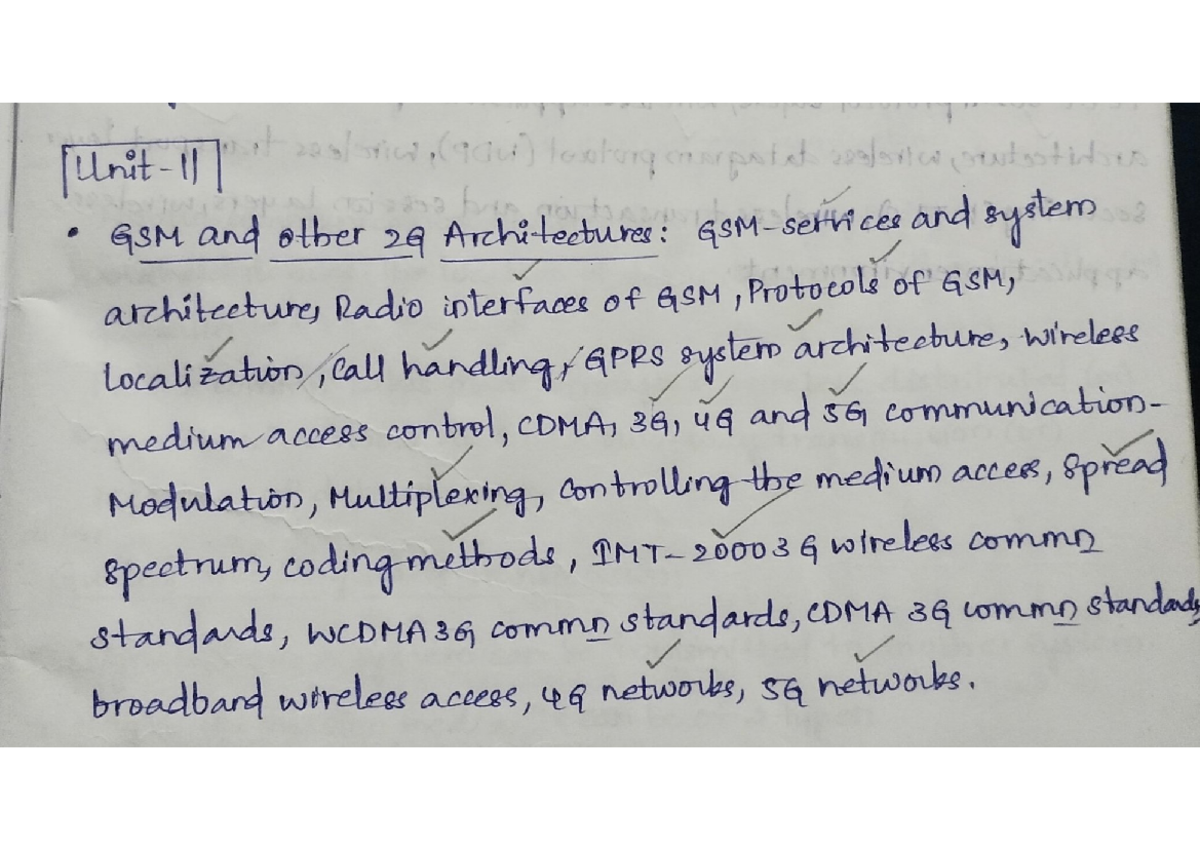 Unit-II
• GSM and other 2G Architectures: GSM-services and system
architecture, Radio interfaces of GSM, Protocols of GSM,
Localization, Call handling, GPRS system architecture, wireless
medium access control, CDMA, 3G, 4G and 5G communication-
Modulation, Multiplexing, Controlling the medium access, Spread
spectrum, coding methods, IMT-2000 3G wireless commn
standards, WCDMA 3G commn standards, CDMA 3G commn standards,
broadband wireless access, 4G networks, 5G networks.